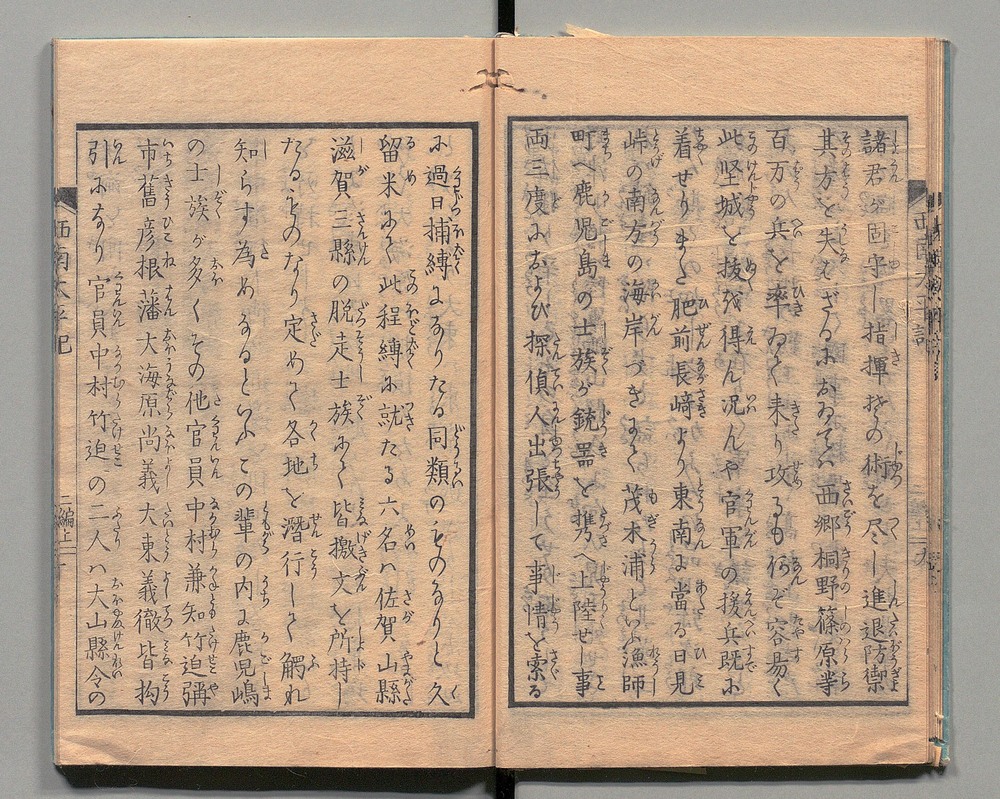 諸君が固守し指揮その術を尽し進退防禦
其方を失はざるにおゐてハ西郷桐野篠原等
百万の兵を率ゐて来り攻るも何ぞ容易く
此堅城を抜を得ん况んや官軍の援兵既に
着せりまた肥前長崎より東南に當る日見
峠の南方の海岸つきにて茂木浦といふ漁師
町へ鹿児島の士族が銃器を携へ上陸せし事
両三度におよび探偵人出張して事情を索る
に過日捕縛になりたる同類のものなりと久
留米にて此程縛に就たる六名ハ佐賀山縣
滋賀三縣の脱走士族にて皆檄文を所持し
たるものなり定めて各地を潜行して觸れ
知らす為めなるといふこの輩の内に鹿児嶋
の士族が多くその他官員中村兼知竹迫彌
市舊彦根藩大海原尚義大東義徹皆拘
引になり官員中村竹迫の二人ハ大山縣令の
西南太平記
二編上